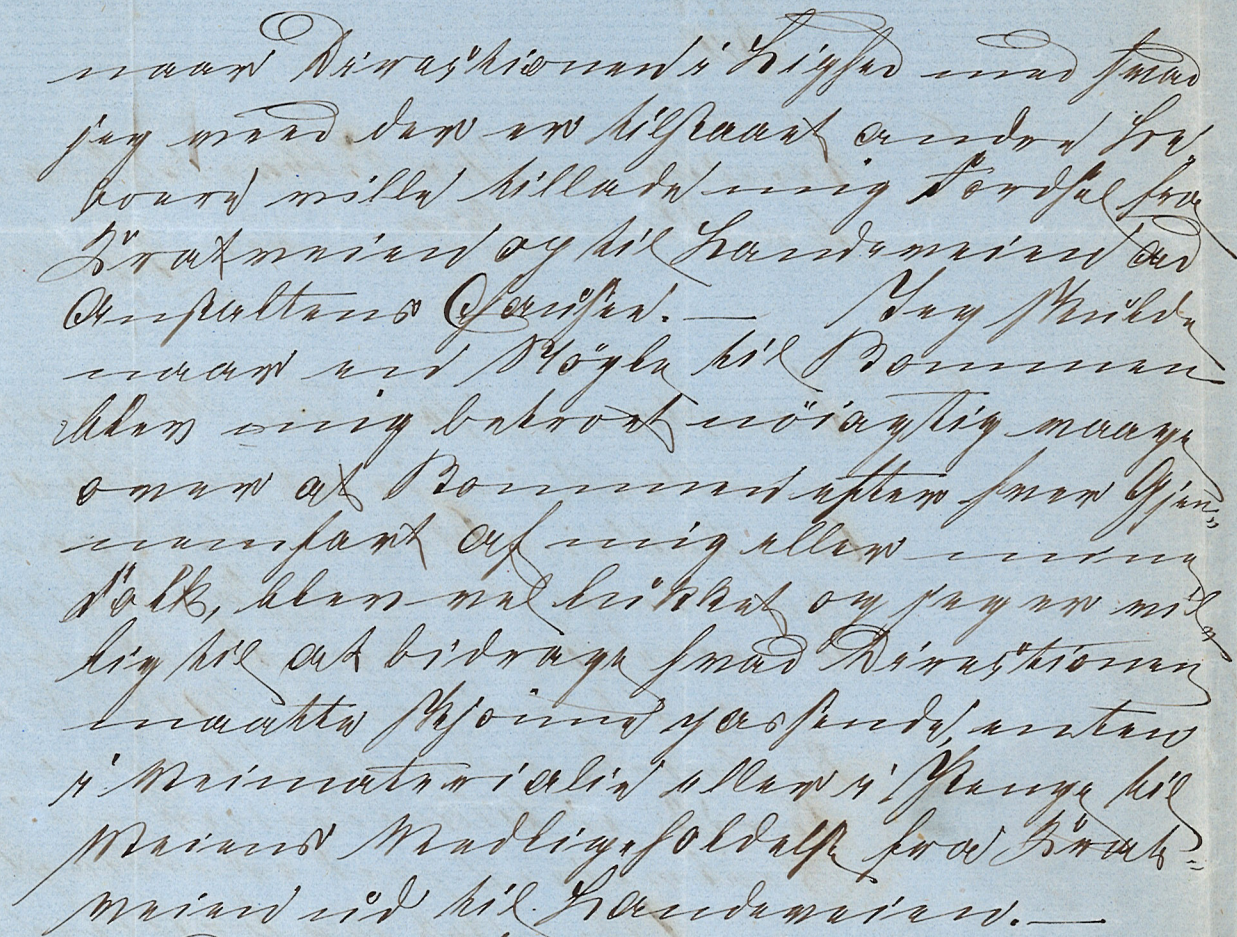 naar Directionen i Lighed med hvad
jeg veed der er tilstaaet andre Bre-
boere ville tillade mig Færdsel fra
Kratveien og til Landeveien ad
Anstaltens Chausse. — Jeg skulde
naar en Nögle til Bommen
blev mig betroet nöiagtig vaage
over at Bommen efter hver Gjen-
nemfart af mig eller mine
Folk, blev vel lukket og jeg er vil-
lig til at bidrage hvad Directionen
maatte skjönne passende, enten
i Veimaterialie eller i Penge til
Veiens Vedligeholdelse fra Krat-
veien ud til Landeveien. —